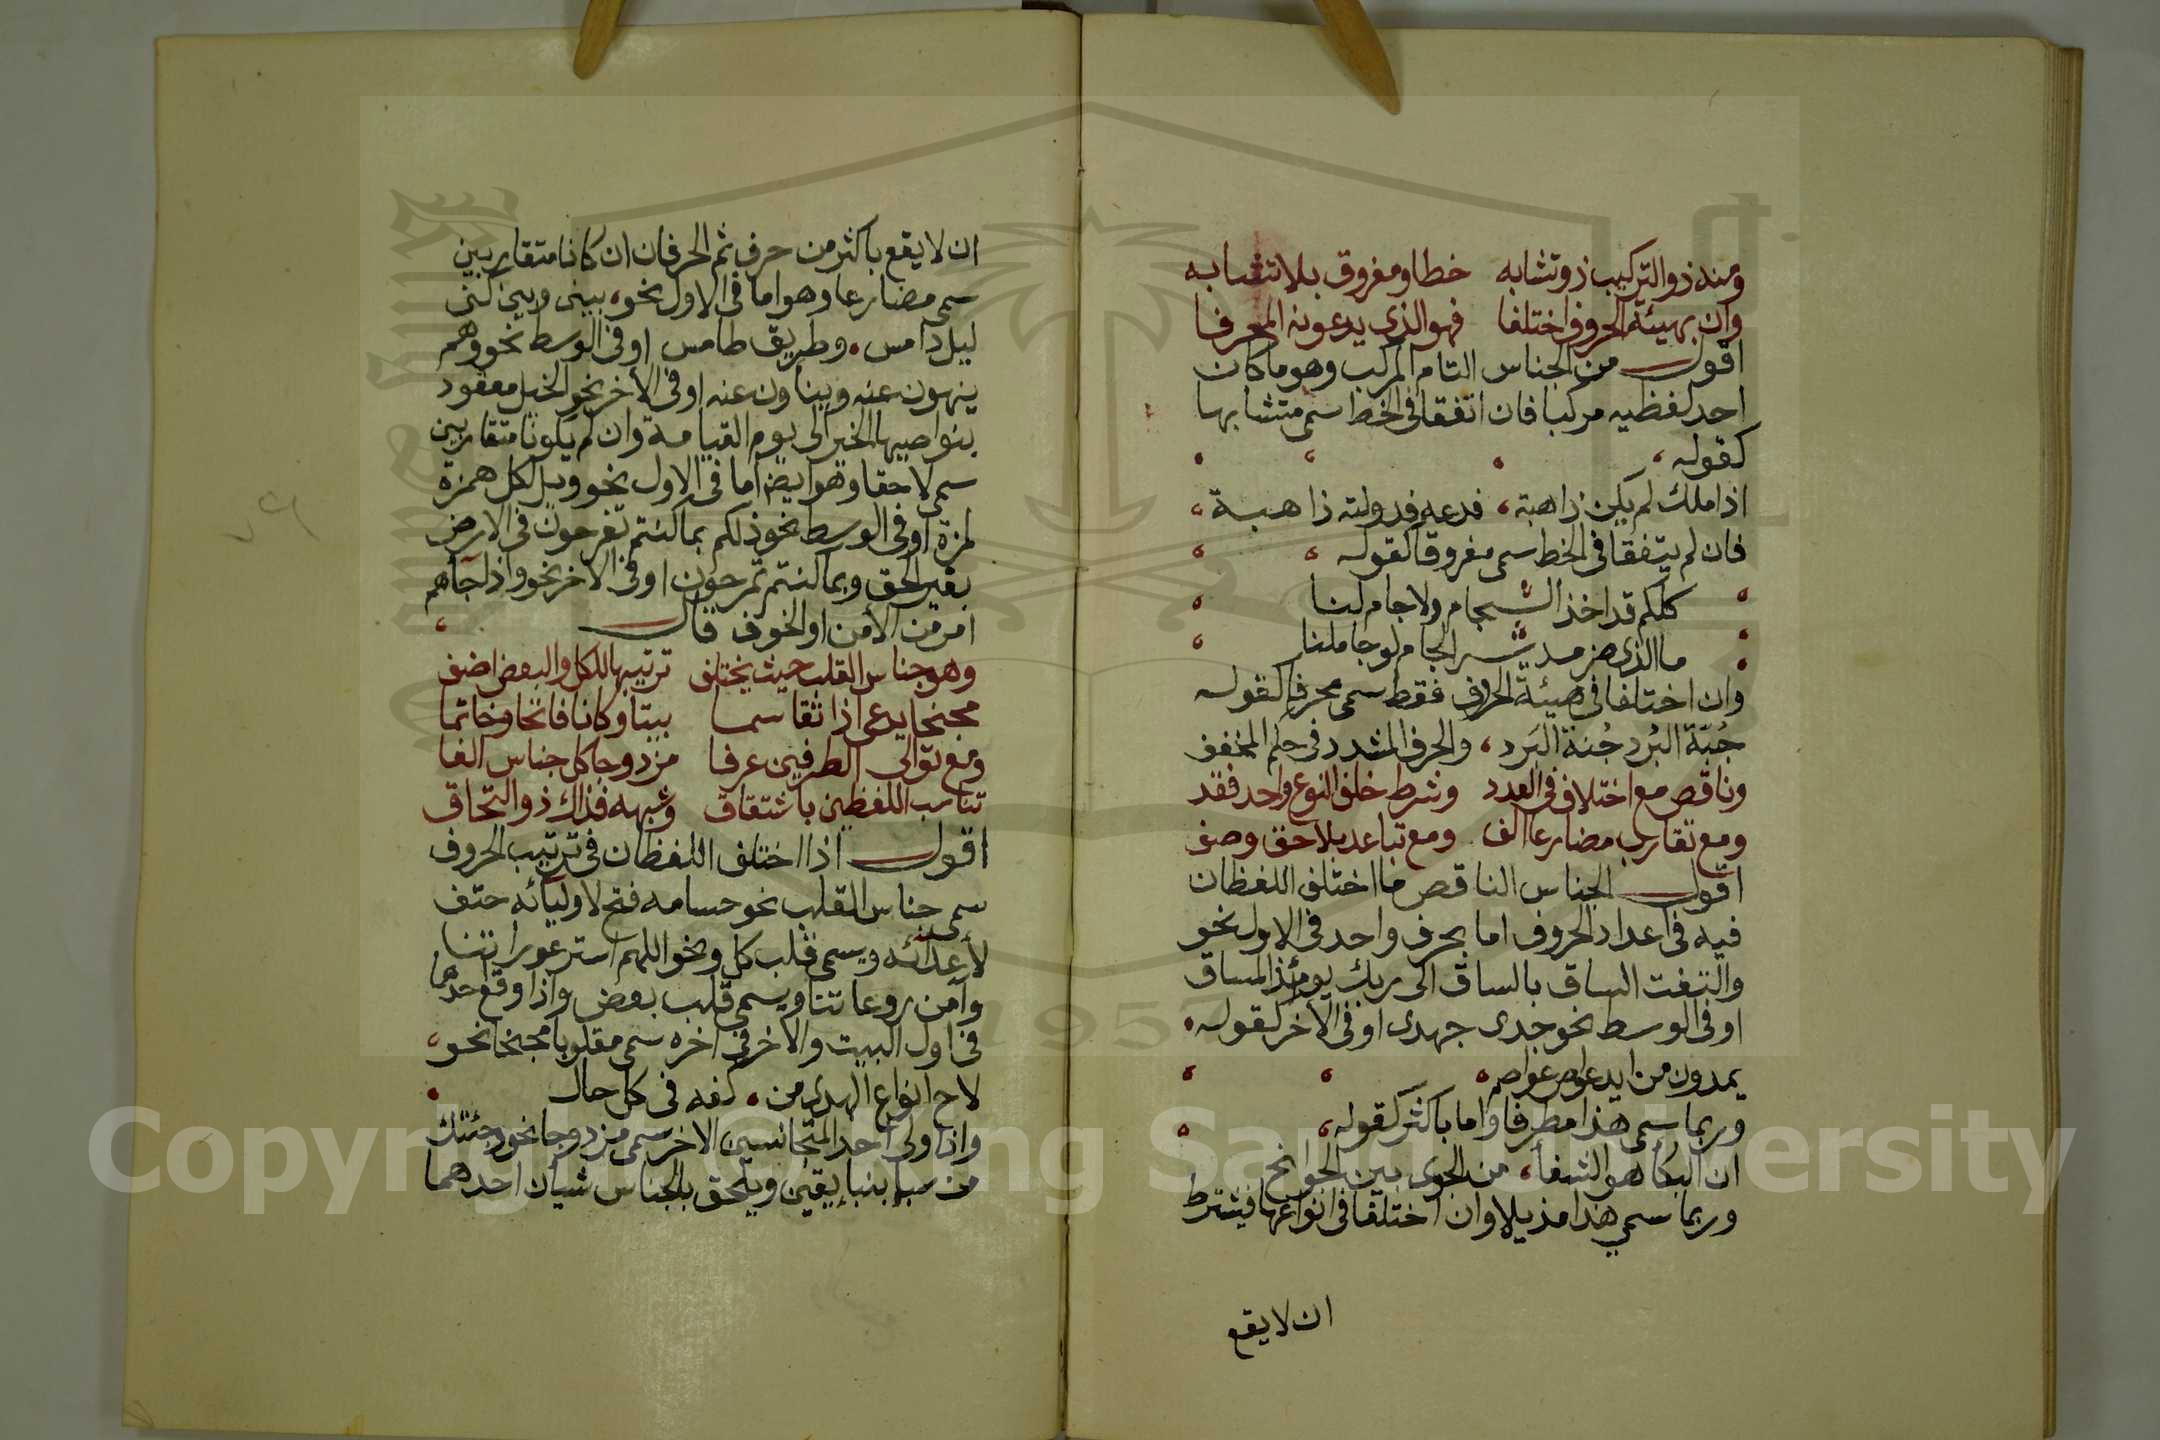 ومنه ذو التركيب ذو تشابه خطا ومفروق بلا تشابه
وان بهيئة الحروف اختلفا فهو الذي يدعونه المحرفا
اقول من الجناس التام المركب وهو ما كان
احد لفظيه مركبا فان اتفقا في الخط سمى متشابها
كقوله
اذا ملك لم يكن ذا هبة فدعه فدولته ذاهبة
فان لم يتفقا في الخط سمى مفروقا كقوله
كلكم قد اخذ الجام ولا جام لنا
ما الذي ضر مدير الجام لو جاملنا
وان اختلفا في هيئة الحروف فقط سمى محرفا كقوله
جُبّة البُرد جُنة البَرد، والحرف المشدد في حكم المخفف
وناقص مع اختلاف في العدد وشرط خلف النوع واحد فقد
ومع تقارب مضارعا الف ومع تباعد بلاحق وصف
اقول الجناس الناقص ما اختلف اللفظان
فيه في اعداد الحروف اما بحرف واحد في الاول نحو
والتفت الساق بالساق الى ربك يومئذ المساق
او في الوسط نحو جدى جهدى او في الآخر كقوله
يمدون من ايد عواص عواصم
وربما سمى هذا مطرفا واما باكثر كقوله
ان البكأ هو الشفأ، من الجوى بين الجوانح
وربما سمي هذا مذيلا وان اختلفا في انواعها فيشترط
ان لا يقع
ان لا يقع باكثر من حرف ثم الحرفان ان كانا متقاربين
سمى مضارعا وهو اما في الاول نحو، بينى وبين كنى
ليل دامس، وطريق طامس او في الوسط نحو وهم
ينهون عنه وينأون عنه او في الآخر نحو الخيل معقود
بنواصيها الخير الى يوم القيامة وان لم يكونا متقاربين
سمى لاحقا وهو ايضا اما في الاول نحو ويل لكل همزة
لمزة او في الوسط نحو ذلكم بما كنتم تفرحون في الارض
بغير الحق وبما كنتم تمرحون او في الآخر نحو واذا جآهم
امر من الأمن او الخوف قال
وهو جناس القلب حيث يختلف ترتيبها للكل والبعض اضف
مجنحا يدعى اذا تقاسما بيتا وكانا فاتحا وخاتما
ومع توالى الطرفين عرفا مزدوجا كل جناس الفا
تناسب اللفظين باشتقاق وشبهه فذاك ذو التحاق
اقول اذا اختلف اللفظان في ترتيب الحروف
سمى جناس القلب نحو حسامه فتح لاوليآئه حتف
لأعدائه ويسمى قلب كل ونحو اللهم استر عوراتنا
وآمن روعاتنا ويسمى قلب بعض واذا وقع احدهما
في اول البيت والآخر في آخره سمى مقلوبا مجنحا نحو
لاح انواع الهدى من، كفه في كل حال
واذا ولى احد المتجانسين الآخر سمى مزدوجا نحو وجئتك
من سبإ بنبإ يقين ويلحق بالجناس شيأن احدهما
Copyright © King Saud University
1957